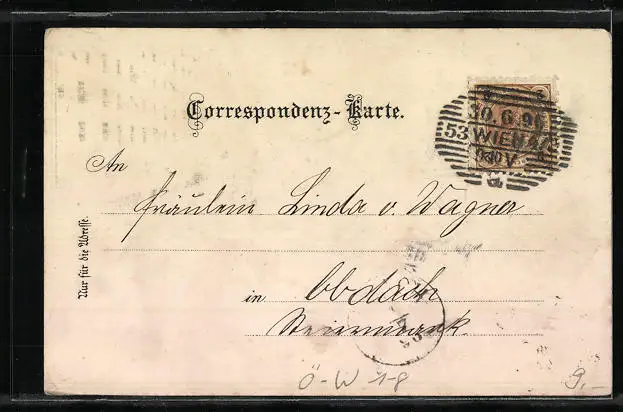 Correspondenz-Karte.
30.6.96
53 WIEN
An
Fräulein Linda v. Wagner
Nur für die Adresse.
in Obdach
Steiermark
Ö-W 1-8
9,-